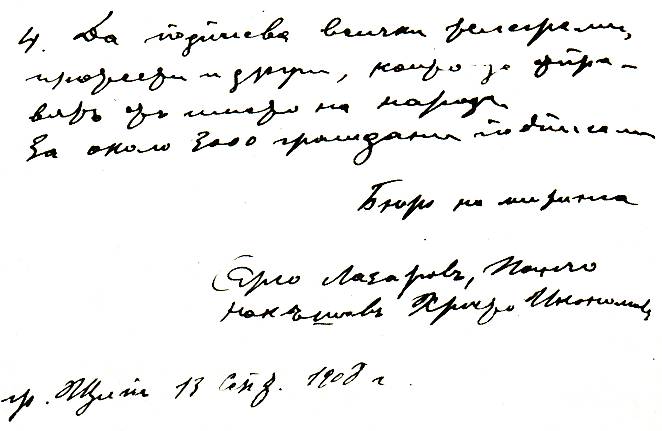 4. Да подписва всички телеграми,
протести и други, които се отпра-
вятъ отъ името на народа
За около 3000 граждани подписали
Бюро на митинга
Ефто Лазаровъ, Панчо
Христо Икономовъ
гр. Щипъ 13 Септ. 1908 г.